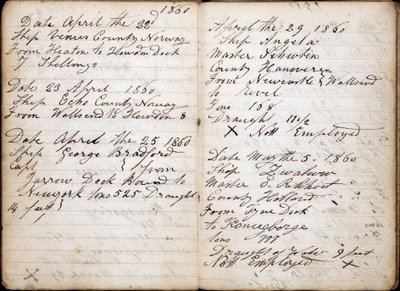 1860
Date April the 22
Ship Venus County Norway
From Heaton to Howdn Dock
7 Shellings
Date 23 April 1860
Ship Ocho County Norway
From Wallsend to Howdon 8
Date April the 25 1860
Ship George Bradford
Capt } from
Jarrow Dock Bound to
Newyork tons 525 Draught
14 feet
Aperil the 29 1860
Ship Angela
Master
County Hanoveren
From Newcastle & Wallsend
to
Tons 158
Draught
X Nott Employed
Date March 5 1860
Ship
Master E.
County Holland
From Tyne Dock
to
tons
Draught of Water 9 feet
Nott Employed X